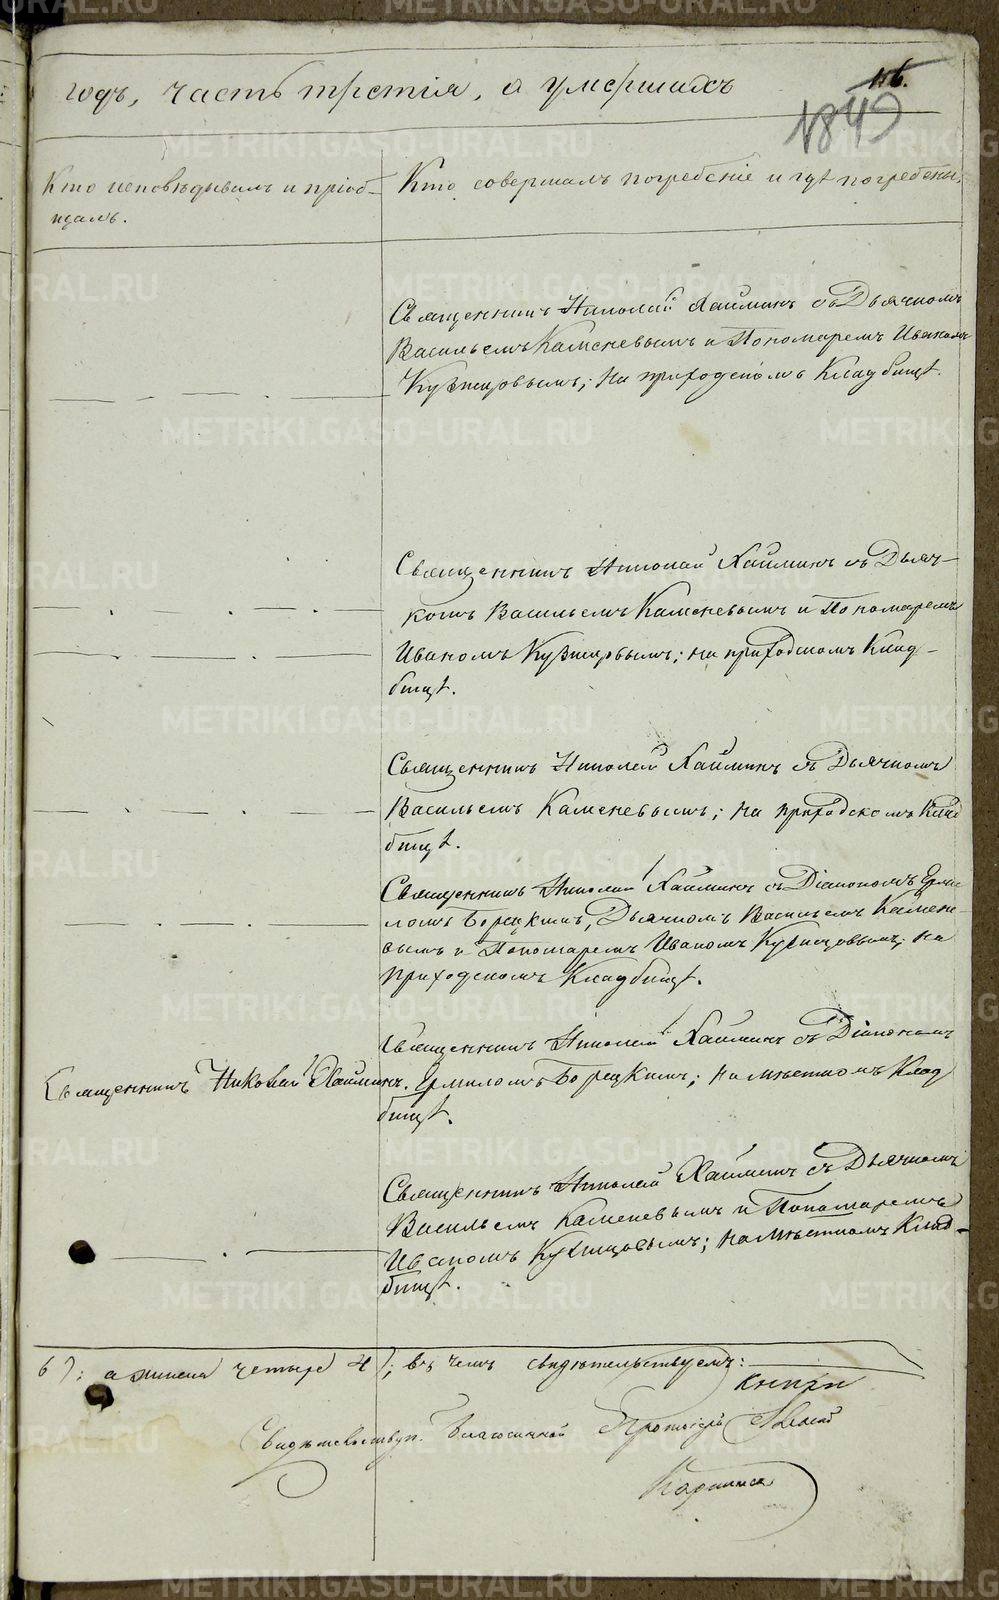 годъ, часть третія, о умершихъ
116.
1849
Кто исповѣдывалъ и пріоб-
щалъ.
Кто совершалъ погребеніе и гдѣ погребены.
Священникъ Николай Хайминъ съ Дьячкомъ
Васильемъ Каменевымъ и Пономаремъ Иваномъ
Кузнецовымъ; на приходскомъ Кладбищѣ.
Священникъ Николай Хайминъ съ Дьяч-
комъ Васильемъ Каменевымъ и Пономаремъ
Иваномъ Кузнецовымъ; на приходскомъ Клад-
бищѣ.
Священникъ Николай Хайминъ съ Дьячкомъ
Васильемъ Каменевымъ; на приходскомъ Клад
бищѣ.
Священникъ Николай Хайминъ съ Діакономъ Ерми
ломъ Борецкимъ, Дьячкомъ Васильемъ Камен-
вымъ и Пономаремъ Иваномъ Кузнецовымъ; на
приходскомъ Кладбищѣ.
Священникъ Николай Хайминъ.
Священникъ Николай Хайминъ съ Діакономъ
Ермиломъ Борецкимъ; на мѣстномъ Клад
бищѣ.
Священникъ Николай Хайминъ съ Дьячкомъ
Васильемъ Каменевымъ и Пономаремъ
Иваномъ Кузнецовымъ; на мѣстномъ Клад-
бищѣ.
6); а женска четыре 4); въ чемъ свидѣтельствуемъ:
Благочинный
METRIKI.GASO-URAL.RU